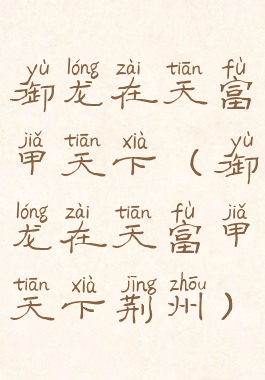 yù lóng zài tiān fù
御龙在天富
jiǎ tiān xià yù
甲天下（御
lóng zài tiān fù jiǎ
龙在天富甲
tiān xià jīng zhōu
天下荆州）